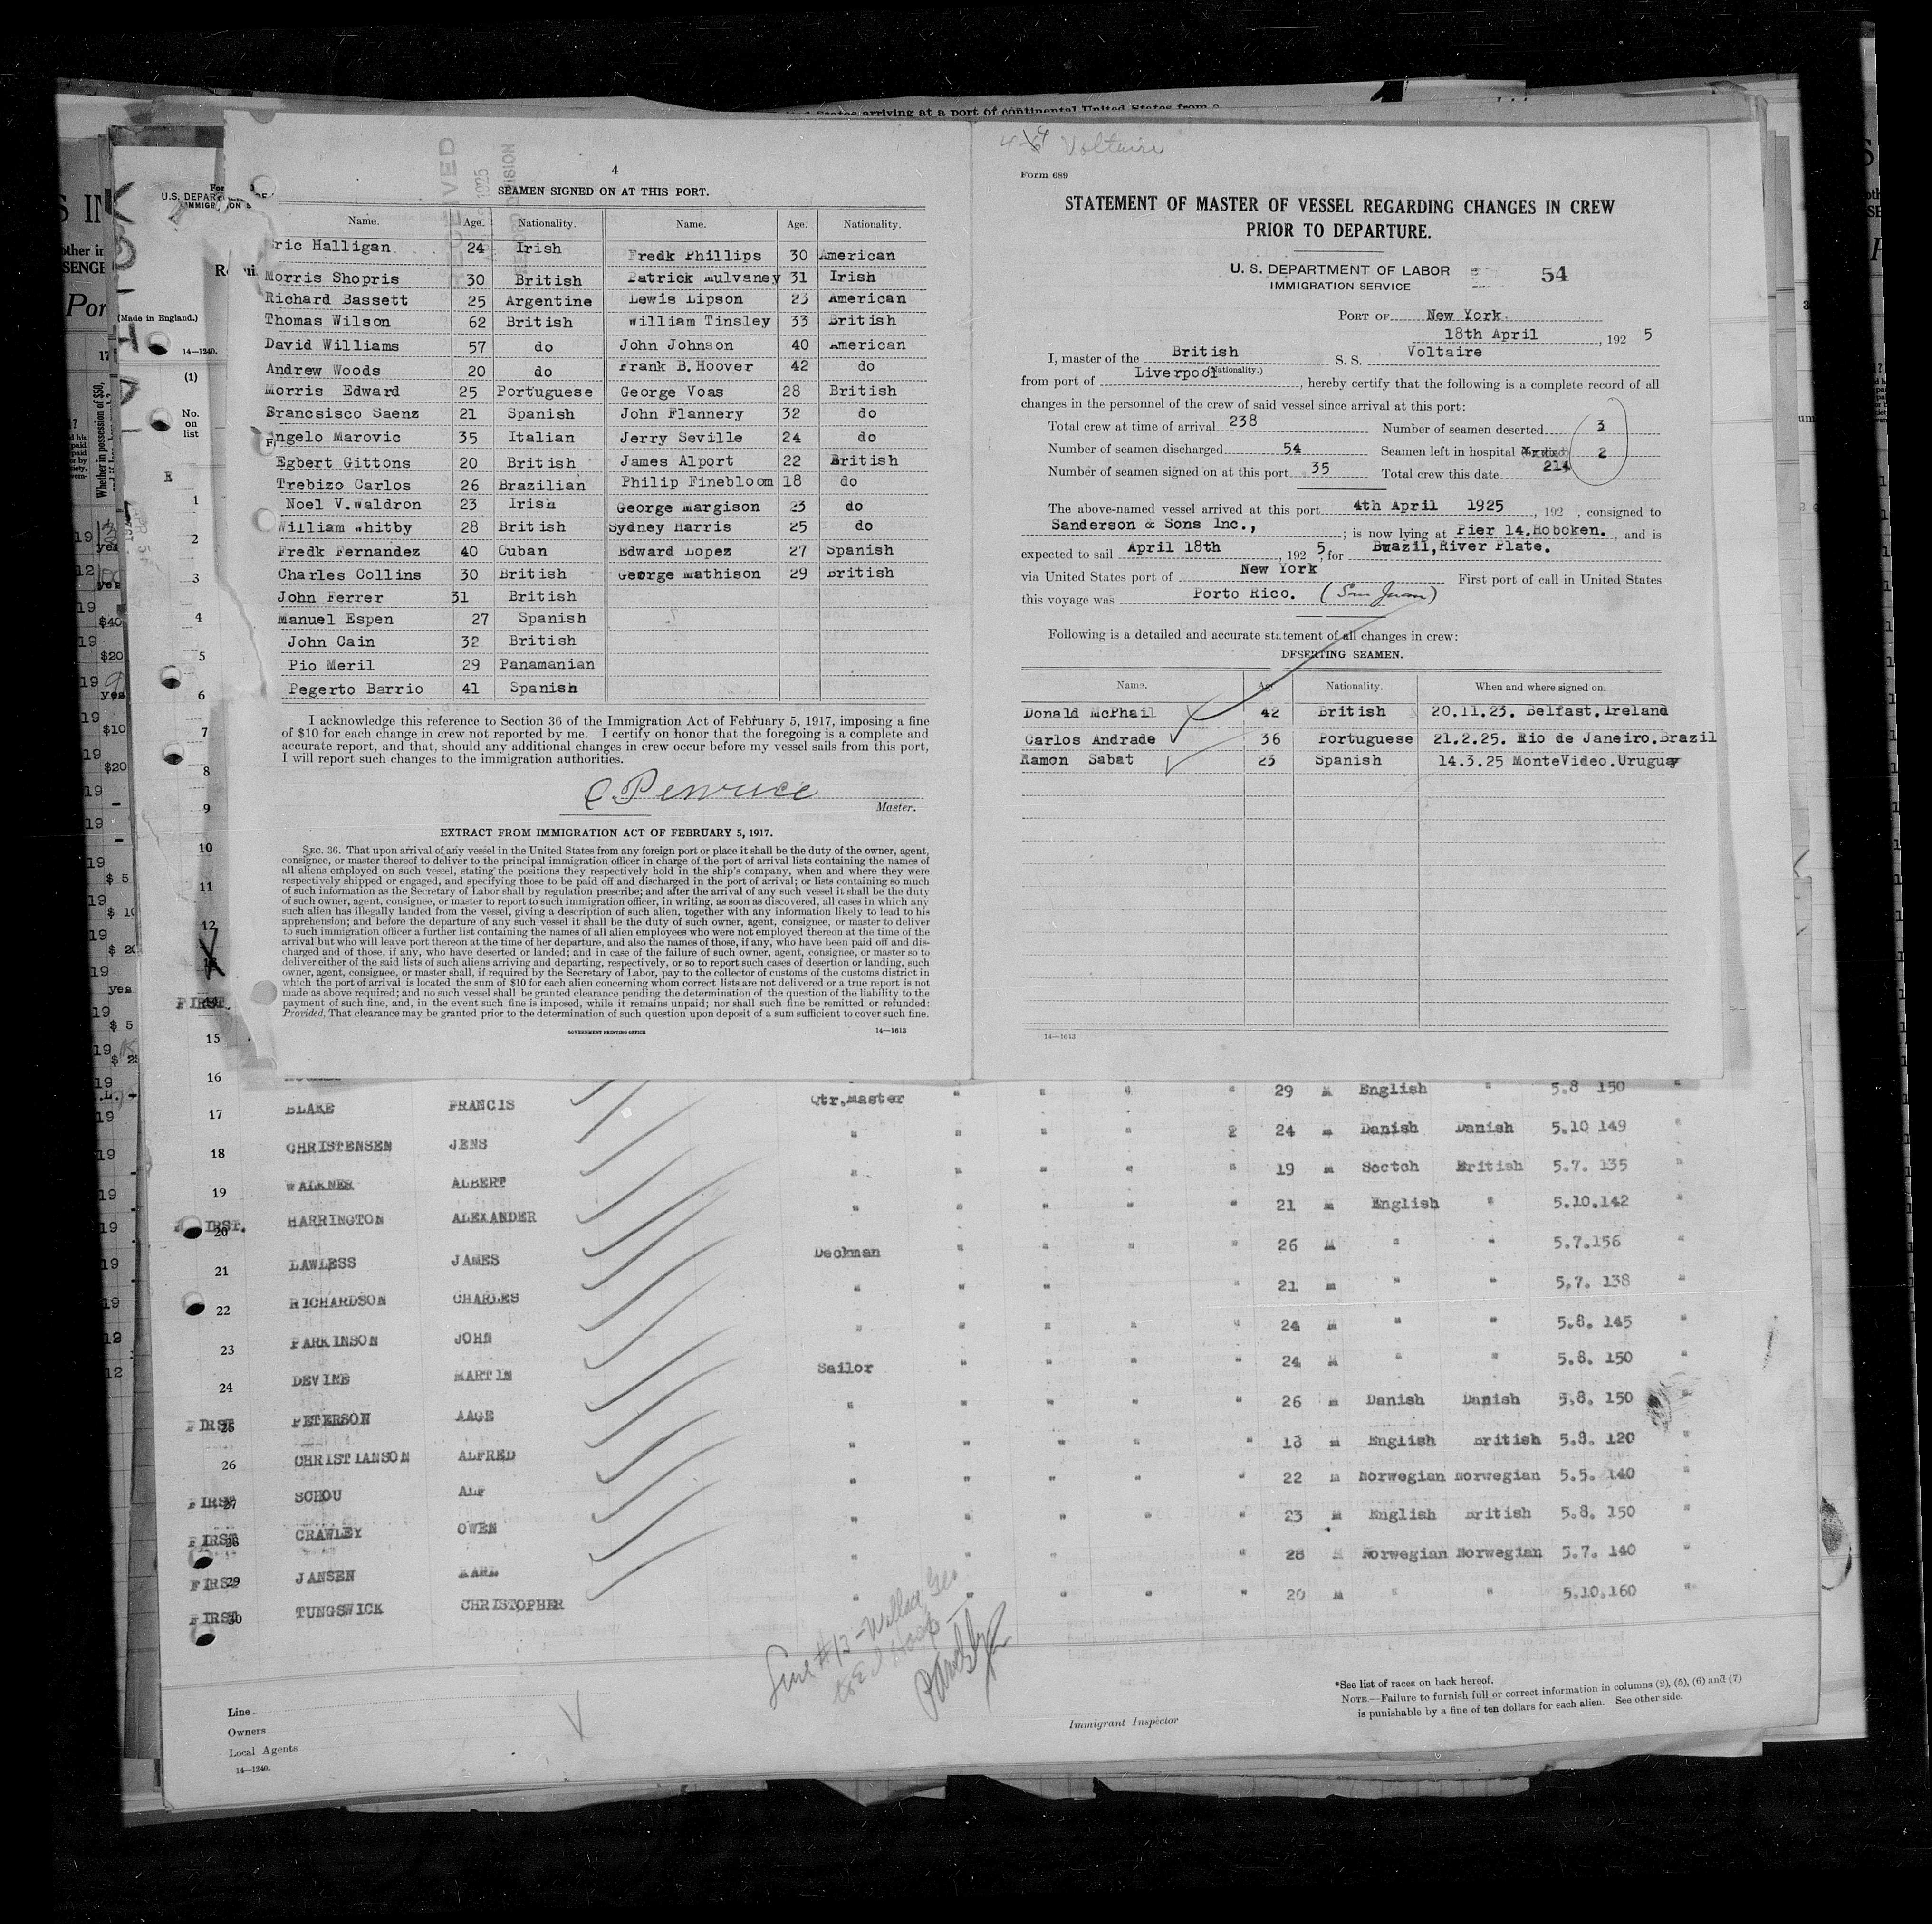 4
SEAMEN SIGNED ON AT THIS PORT.
Name. Age. Nationality. Name. Age. Nationality.
ric Halligan 24 Irish Fredk Phillips 30 American
Morris Shopris 30 British Patrick Mulvaney 31 Irish
Richard Bassett 25 Argentine Lewis Lipson 23 American
Thomas Wilson 62 British William Tinsley 33 British
David Williams 57 do John Johnson 40 American
Andrew Woods 20 do Frank B.Hoover 42 do
Morris Edward 25 Portuguese George Voas 28 British
Francsisco Saenz 21 Spanish John Flannery 32 do
Angelo Marovic 35 Italian Jerry Seville 24 do
Egbert Gittons 20 British James Alport 22 British
Trebizo Carlos 26 Brazilian Philip Finebloom 18 do
Noel V.Waldron 23 Irish George Margison 23 do
William Whitby 28 British Sydney Harris 25 do
Fredk Fernandez 40 Cuban Edward Lopez 27 Spanish
Charles Collins 30 British George Mathison 29 British
John Ferrer 31 British
Manuel Espen 27 Spanish
John Cain 32 British
Pio Meril 29 Panamanian
Pegerto Barrio 41 Spanish
I acknowledge this reference to Section 36 of the Immigration Act of February 5, 1917, imposing a fine
of $10 for each change in crew not reported by me. I certify on honor that the foregoing is a complete and
accurate report, and that, should any additional changes in crew occur before my vessel sails from this port,
I will report such changes to the immigration authorities.
Master.
EXTRACT FROM IMMIGRATION ACT OF FEBRUARY 5, 1917.
SEC. 36. That upon arrival of any vessel in the United States from any foreign port or place it shall be the duty of the owner, agent,
consignee, or master thereof to deliver to the principal immigration officer in charge of the port of arrival lists containing the names of
all aliens employed on such vessel, stating the positions they respectively hold in the ship's company, when and where they were
respectively shipped or engaged, and specifying those to be paid off and discharged in the port of arrival; or lists containing so much
of such information as the Secretary of Labor shall by regulation prescribe; and after the arrival of any such vessel it shall be the duty
of such owner, agent, consignee, or master to report to such immigration officer, in writing, as soon as discovered, all cases in which any
such alien has illegally landed from the vessel, giving a description of such alien, together with any information likely to lead to his
apprehension; and before the departure of any such vessel it shall be the duty of such owner, agent, consignee, or master to deliver
to such immigration officer a further list containing the names of all alien employees who were not employed thereon at the time of the
arrival but who will leave port thereon at the time of her departure, and also the names of those, if any, who have been paid off and dis-
charged and of those, if any, who have deserted or landed; and in case of the failure of such owner, agent, consignee, or master so to
deliver either of the said lists of such aliens arriving and departing, respectively, or so to report such cases of desertion or landing, such
owner, agent, consignee, or master shall, if required by the Secretary of Labor, pay to the collector of customs of the customs district in
which the port of arrival is located the sum of $10 for each alien concerning whom correct lists are not delivered or a true report is not
made as above required; and no such vessel shall be granted clearance pending the determination of the question of the liability to the
payment of such fine, and, in the event such fine is imposed, while it remains unpaid; nor shall such fine be remitted or refunded:
Provided, That clearance may be granted prior to the determination of such question upon deposit of a sum sufficient to cover such fine.
GOVERNMENT PRINTING OFFICE 14—1613
Voltaire
Form 689
STATEMENT OF MASTER OF VESSEL REGARDING CHANGES IN CREW
PRIOR TO DEPARTURE.
U. S. DEPARTMENT OF LABOR
IMMIGRATION SERVICE
54
PORT OF New York.
18th April, 192 5
I, master of the British S. S. Voltaire
(Nationality.)
from port of Liverpool, hereby certify that the following is a complete record of all
changes in the personnel of the crew of said vessel since arrival at this port:
Total crew at time of arrival 238 Number of seamen deserted 3
Number of seamen discharged 54 Seamen left in hospital 2
Number of seamen signed on at this port 35 Total crew this date 214
The above-named vessel arrived at this port 4th April 1925, 192 , consigned to
Sanderson & Sons Inc., ; is now lying at Pier 14.Hoboken. , and is
expected to sail April 18th, 192 5, for Brazil,River Plate.
via United States port of New York First port of call in United States
this voyage was Porto Rico. (San Juan)
Following is a detailed and accurate statement of all changes in crew:
DESERTING SEAMEN.
Name. Age Nationality. When and where signed on.
Donald McPhail 42 British 20.11.23. Belfast.Ireland
Carlos Andrade 36 Portuguese 21.2.25. Rio de Janeiro.Brazil
Ramon Sabat 23 Spanish 14.3.25 MonteVideo.Uruguay
14—1613
U.S. DEPAR
IMMIGRATION S
(Made in England.)
14—1240.
(1)
No.
on
list
1
2
3
4
5
6
7
8
9
10
11
12
FIRST.
15
16 29 M English " 5.8 150 "
17 BLAKE FRANCIS Qtr.Master " " " " 24 M Danish Danish 5.10 149 "
18 CHRISTENSEN JENS " " " " " 19 M Scotch British 5.7. 135 "
19 WALKNER ALBERT " " " " " 21 M English " 5.10.142
FIRST. 20 HARRINGTON ALEXANDER " " " " " 26 M " " 5.7.156 "
21 LAWLESS JAMES Deckman " " " " 21 M " " 5.7. 138 "
22 RICHARDSON CHARLES " " " " 24 M " " 5.8. 145 "
23 PARKINSON JOHN " " " " " 24 M " " 5.8. 150 "
24 DEVINE MARTIN Sailor " " " " 26 M Danish Danish 5.8. 150
FIRST 25 PETERSON AAGE " " " " " 18 M English British 5.8. 120 "
26 CHRISTIANSON ALFRED " " " " " 22 M Norwegian Norwegian 5.5. 140 "
FIRST 27 SCHOU ALF " " " " " 23 M English British 5.8. 150 "
FIRST 28 CRAWLEY OWEN " " " " " 28 M Norwegian Norwegian 5.7. 140 "
FIRST 29 JANSEN KARL " " " " 20 M " " 5.10.160 "
FIRST 30 TUNGSWICK CHRISTOPHER
Line #13 -
Line
Owners
Local Agents
14—1240.
Immigrant Inspector
*See list of races on back hereof.
NOTE.—Failure to furnish full or correct information in columns (2), (5), (6) and (7)
is punishable by a fine of ten dollars for each alien. See other side.